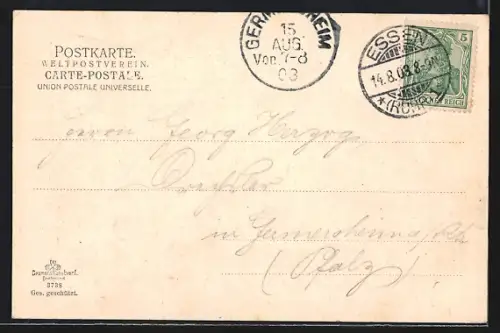 POSTKARTE.
WELTPOSTVEREIN.
CARTE-POSTALE.
UNION POSTALE UNIVERSELLE.
GERM HEIM
15
AUG.
Vor. 7-8
03
ESSEN
14.8.03.8-9
*(RUHR)
5
REICH
Herrn Georg Herzog
in Germersheim a/Rh
(Pfalz)
3738
Ges. geschützt.